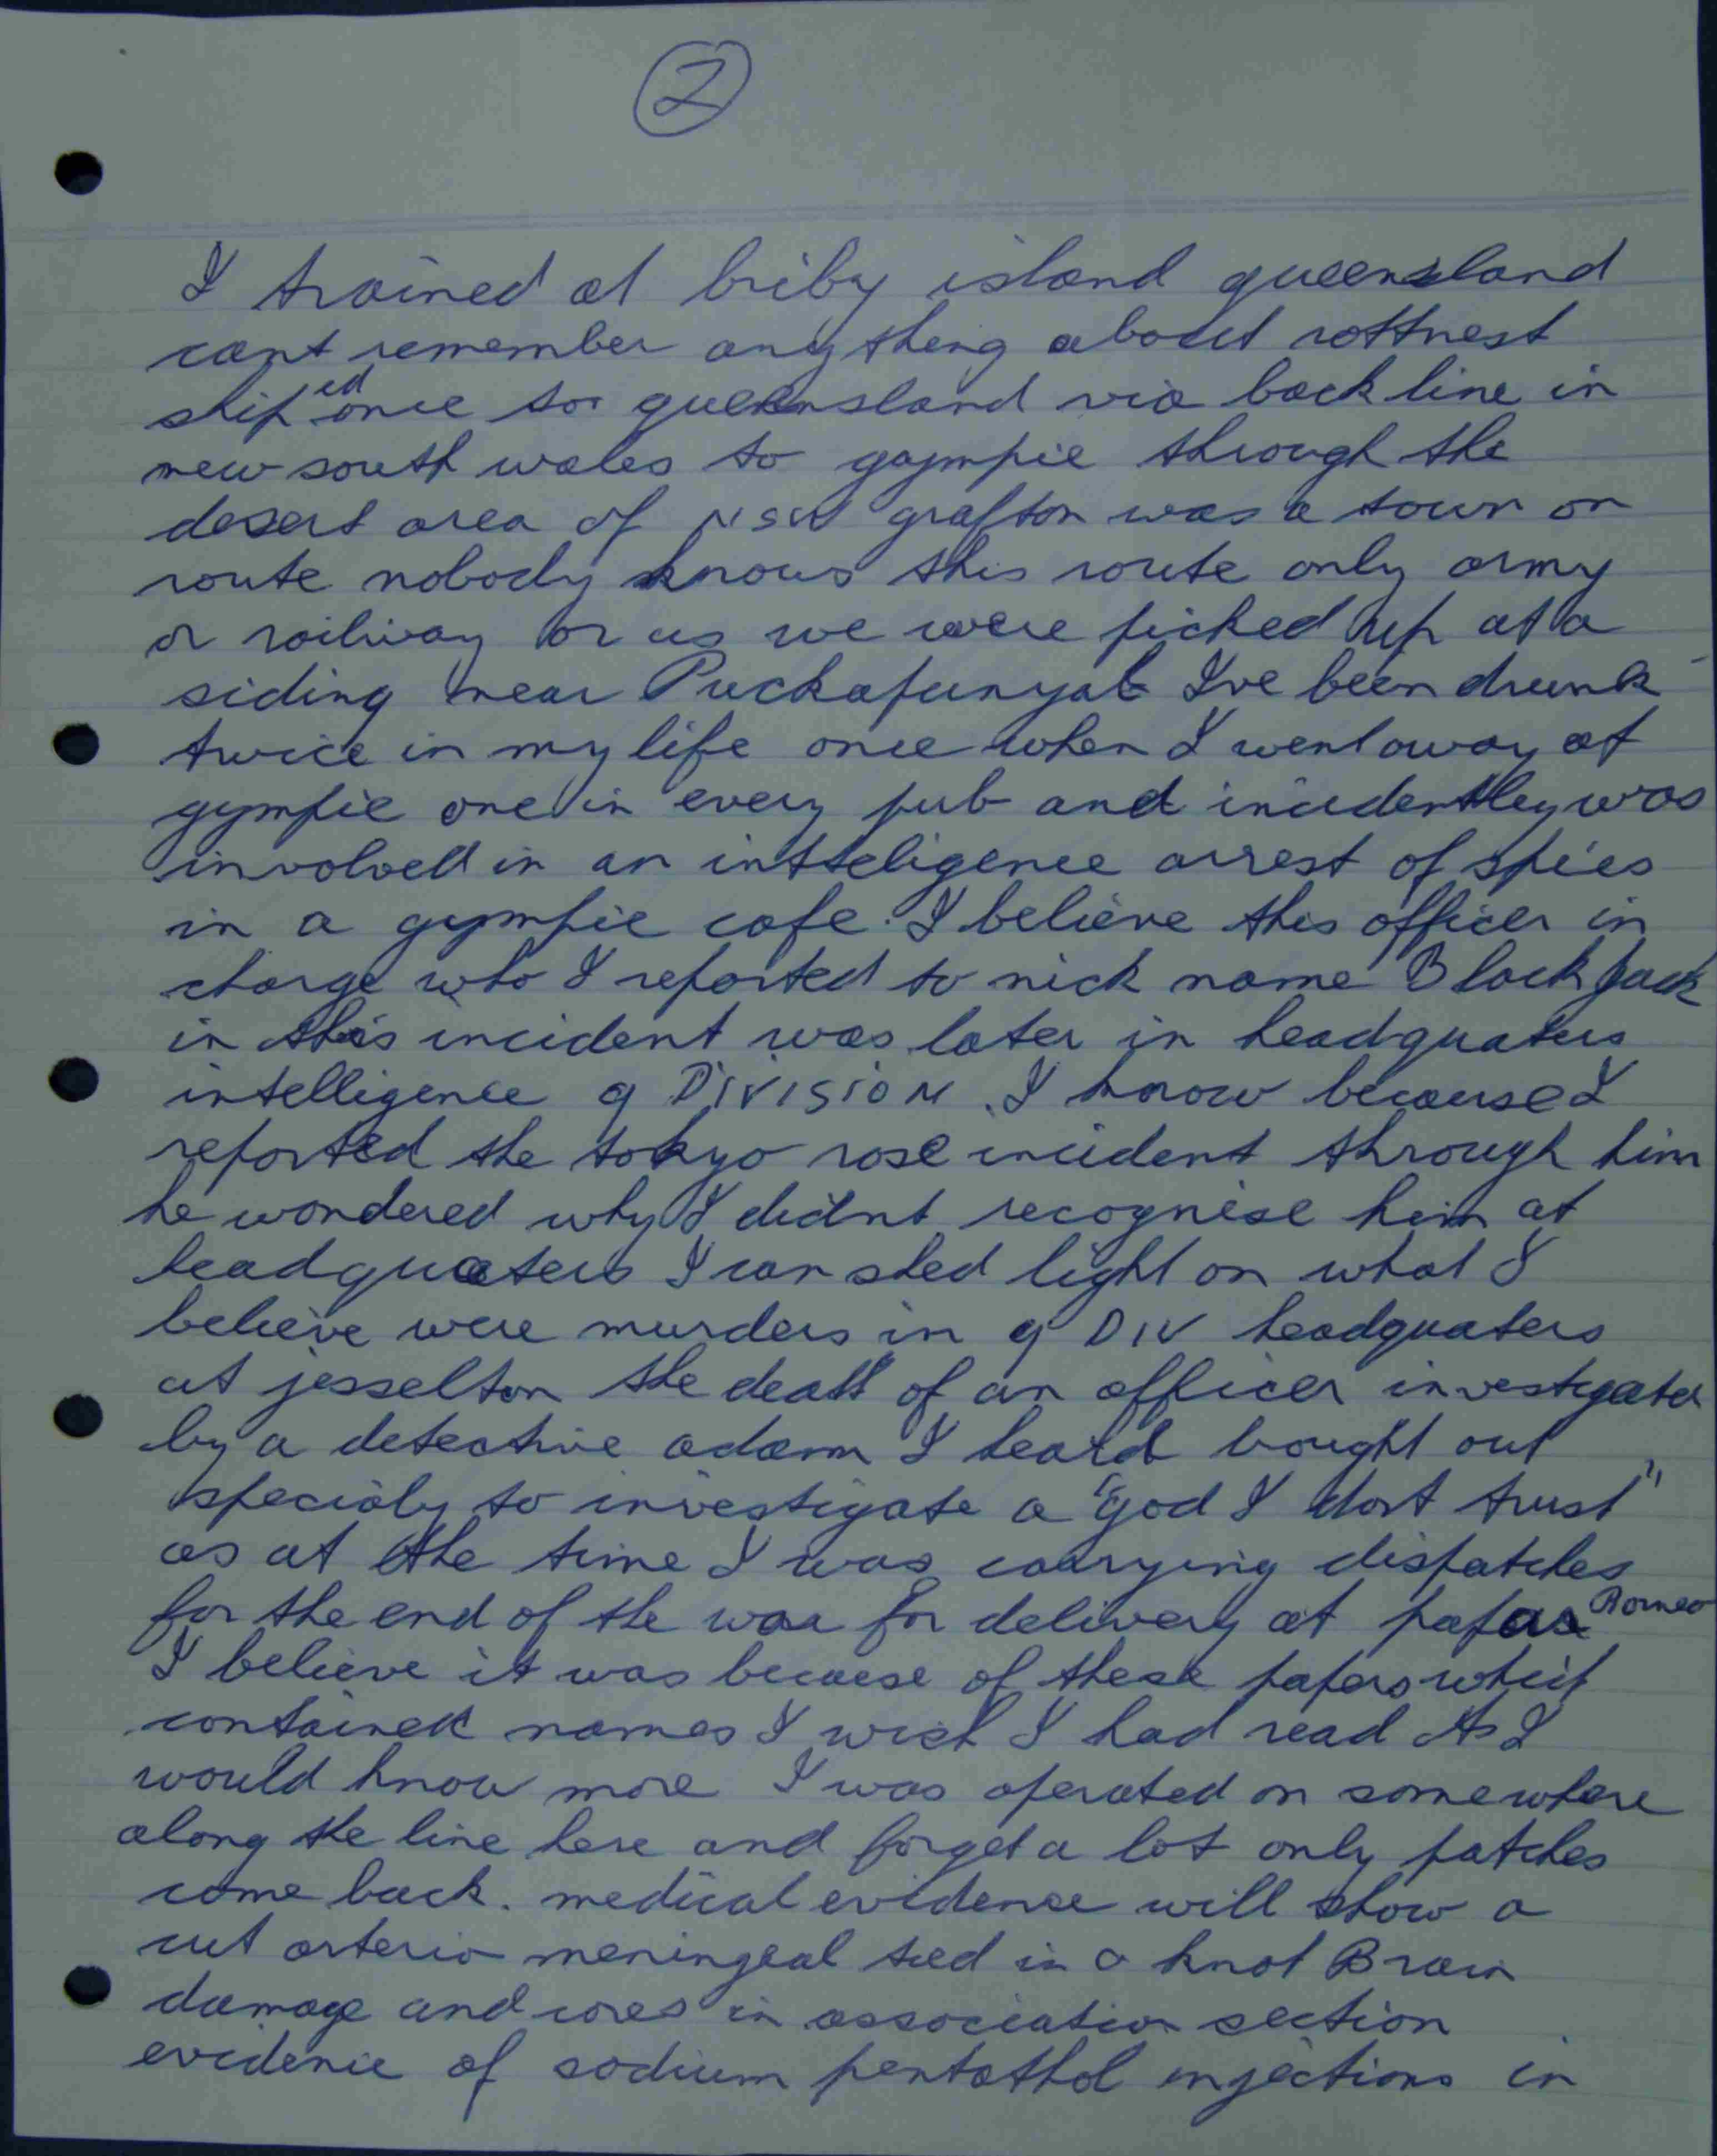 2
I trained at briby island queensland
cant remember any thing about rottnest
shiped once to queensland via back line in
new south wales to gympie through the
desert area of NSW grafton was a town on
route nobody knows this route only army
or railway or us we were picked up at a
siding near Puckapunyal I've been drunk
twice in my life once when I went away at
gympie one in every pub and incidentley was
involved in an intteligence arrest of spies
in a gympie cafe. I believe this officer in
charge who I reported to nick name Black Jack
in this incident was later in headquaters
intelligence 9 DIVISION. I know because I
reported the tokyo rose incident through him
he wondered why I didnt recognise him at
headquaters I can shed light on what I
believe were murders in 9 DIV headquaters
at jesselton the death of an officer investigated
by a detective adam I heard bought out
specialy to investigate a "god I dont trust"
as at the time I was carrying dispatches
for the end of the war for delivery at papar Borneo
I believe it was because of these papers which
contained names I wish I had read As I
would know more I was operated on somewhere
along the line here and forget a lot only patches
come back. medical evidence will show a
cut arterio meningeal tied in a knot Brain
damage and cores in association section
evidence of sodium pentathol injections in